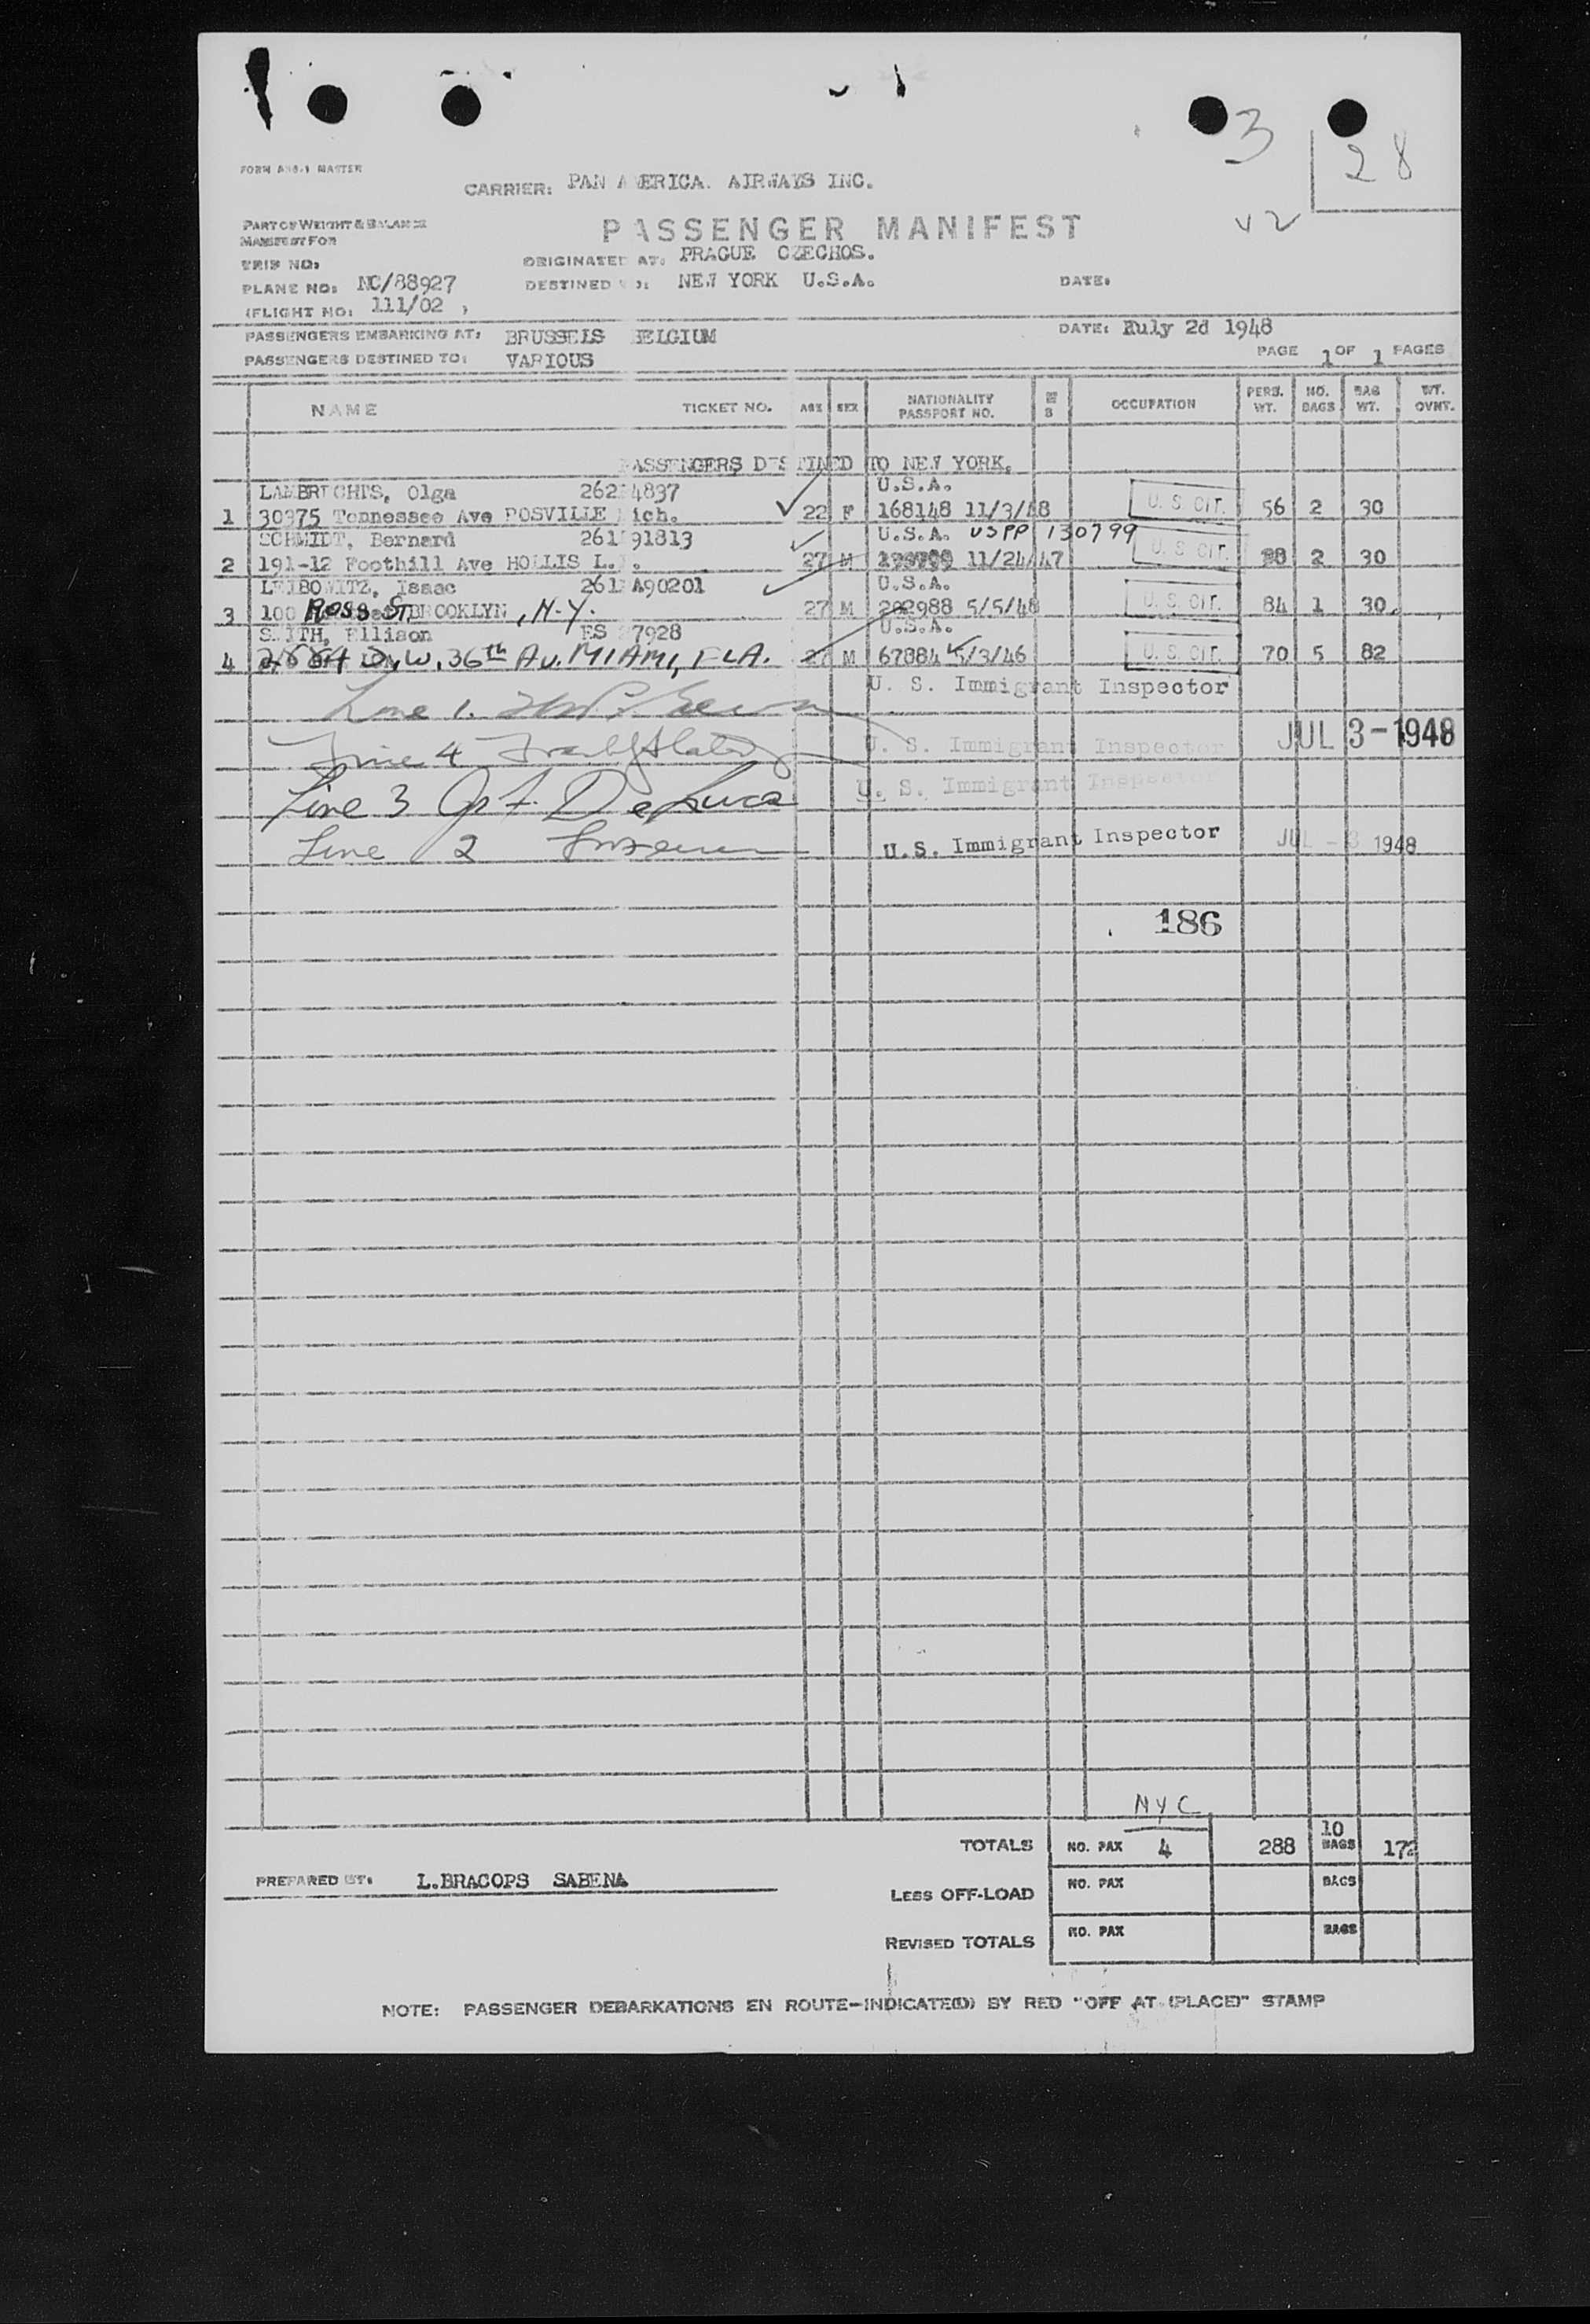 3
28
FORM MASTER
CARRIER: PAN AMERICA. AIRWAYS INC.
PART OF WEIGHT & BALANCE
MANIFEST FOR
PASSENGER MANIFEST
V2
TRIP NO:
ORIGINATED AT: PRAGUE CZECHOS.
PLANE NO: NC/88927
DESTINED TO: NEW YORK U.S.A.
DATE:
(FLIGHT NO: 111/02 ,
PASSENGERS EMBARKING AT: BRUSSELS BELGIUM
DATE: Ruly 2d 1948
PASSENGERS DESTINED TO: VARIOUS
PAGE 1 OF 1 PAGES
NAME TICKET NO. AGE SEX NATIONALITY PASSPORT NO. OCCUPATION PERS. WT. NO. BAGS BAG WT. WT. OVNT.
PASSENGERS DESTINED TO NEW YORK.
LAMBRECHTS, Olga 262 4837 U.S.A.
1 30375 Tennessee Ave ROSVILLE Mich. 22 F 168148 11/3/48 U. S. CIT. 56 2 30
SCHMIDT, Bernard 261 91813 U.S.A. USPP 130799
2 191-12 Foothill Ave HOLLIS L. . 27 M 11/24/47 U. S. CIT. 98 2 30
LEIBOWITZ, Isaac 261 A90201 U.S.A.
3 100 ROSS ST. BROOKLYN, N.Y. 27 M 202988 5/5/48 U. S. CIT. 84 1 30.
SMITH, Ellison ES 7928 U.S.A.
4 W. 36th AV. MIAMI, FLA. 27 M 67884 5/3/46 U. S. CIT. 70 5 82
U. S. Immigrant Inspector
Line 1.
Line 4
U. S. Immigrant Inspector JUL 3-1948
U. S. Immigrant Inspector
Line 3 DeLuca
Line 2
U.S. Immigrant Inspector JUL - 3 1948
186
NYC
TOTALS NO. PAX 4 288 10 BAGS 172
PREPARED BY: L.BRACOPS SABENA
LESS OFF-LOAD NO. PAX BAGS
REVISED TOTALS NO. PAX BAGS
NOTE: PASSENGER DEBARKATIONS EN ROUTE-INDICATE(D) BY RED "OFF AT (PLACE)" STAMP